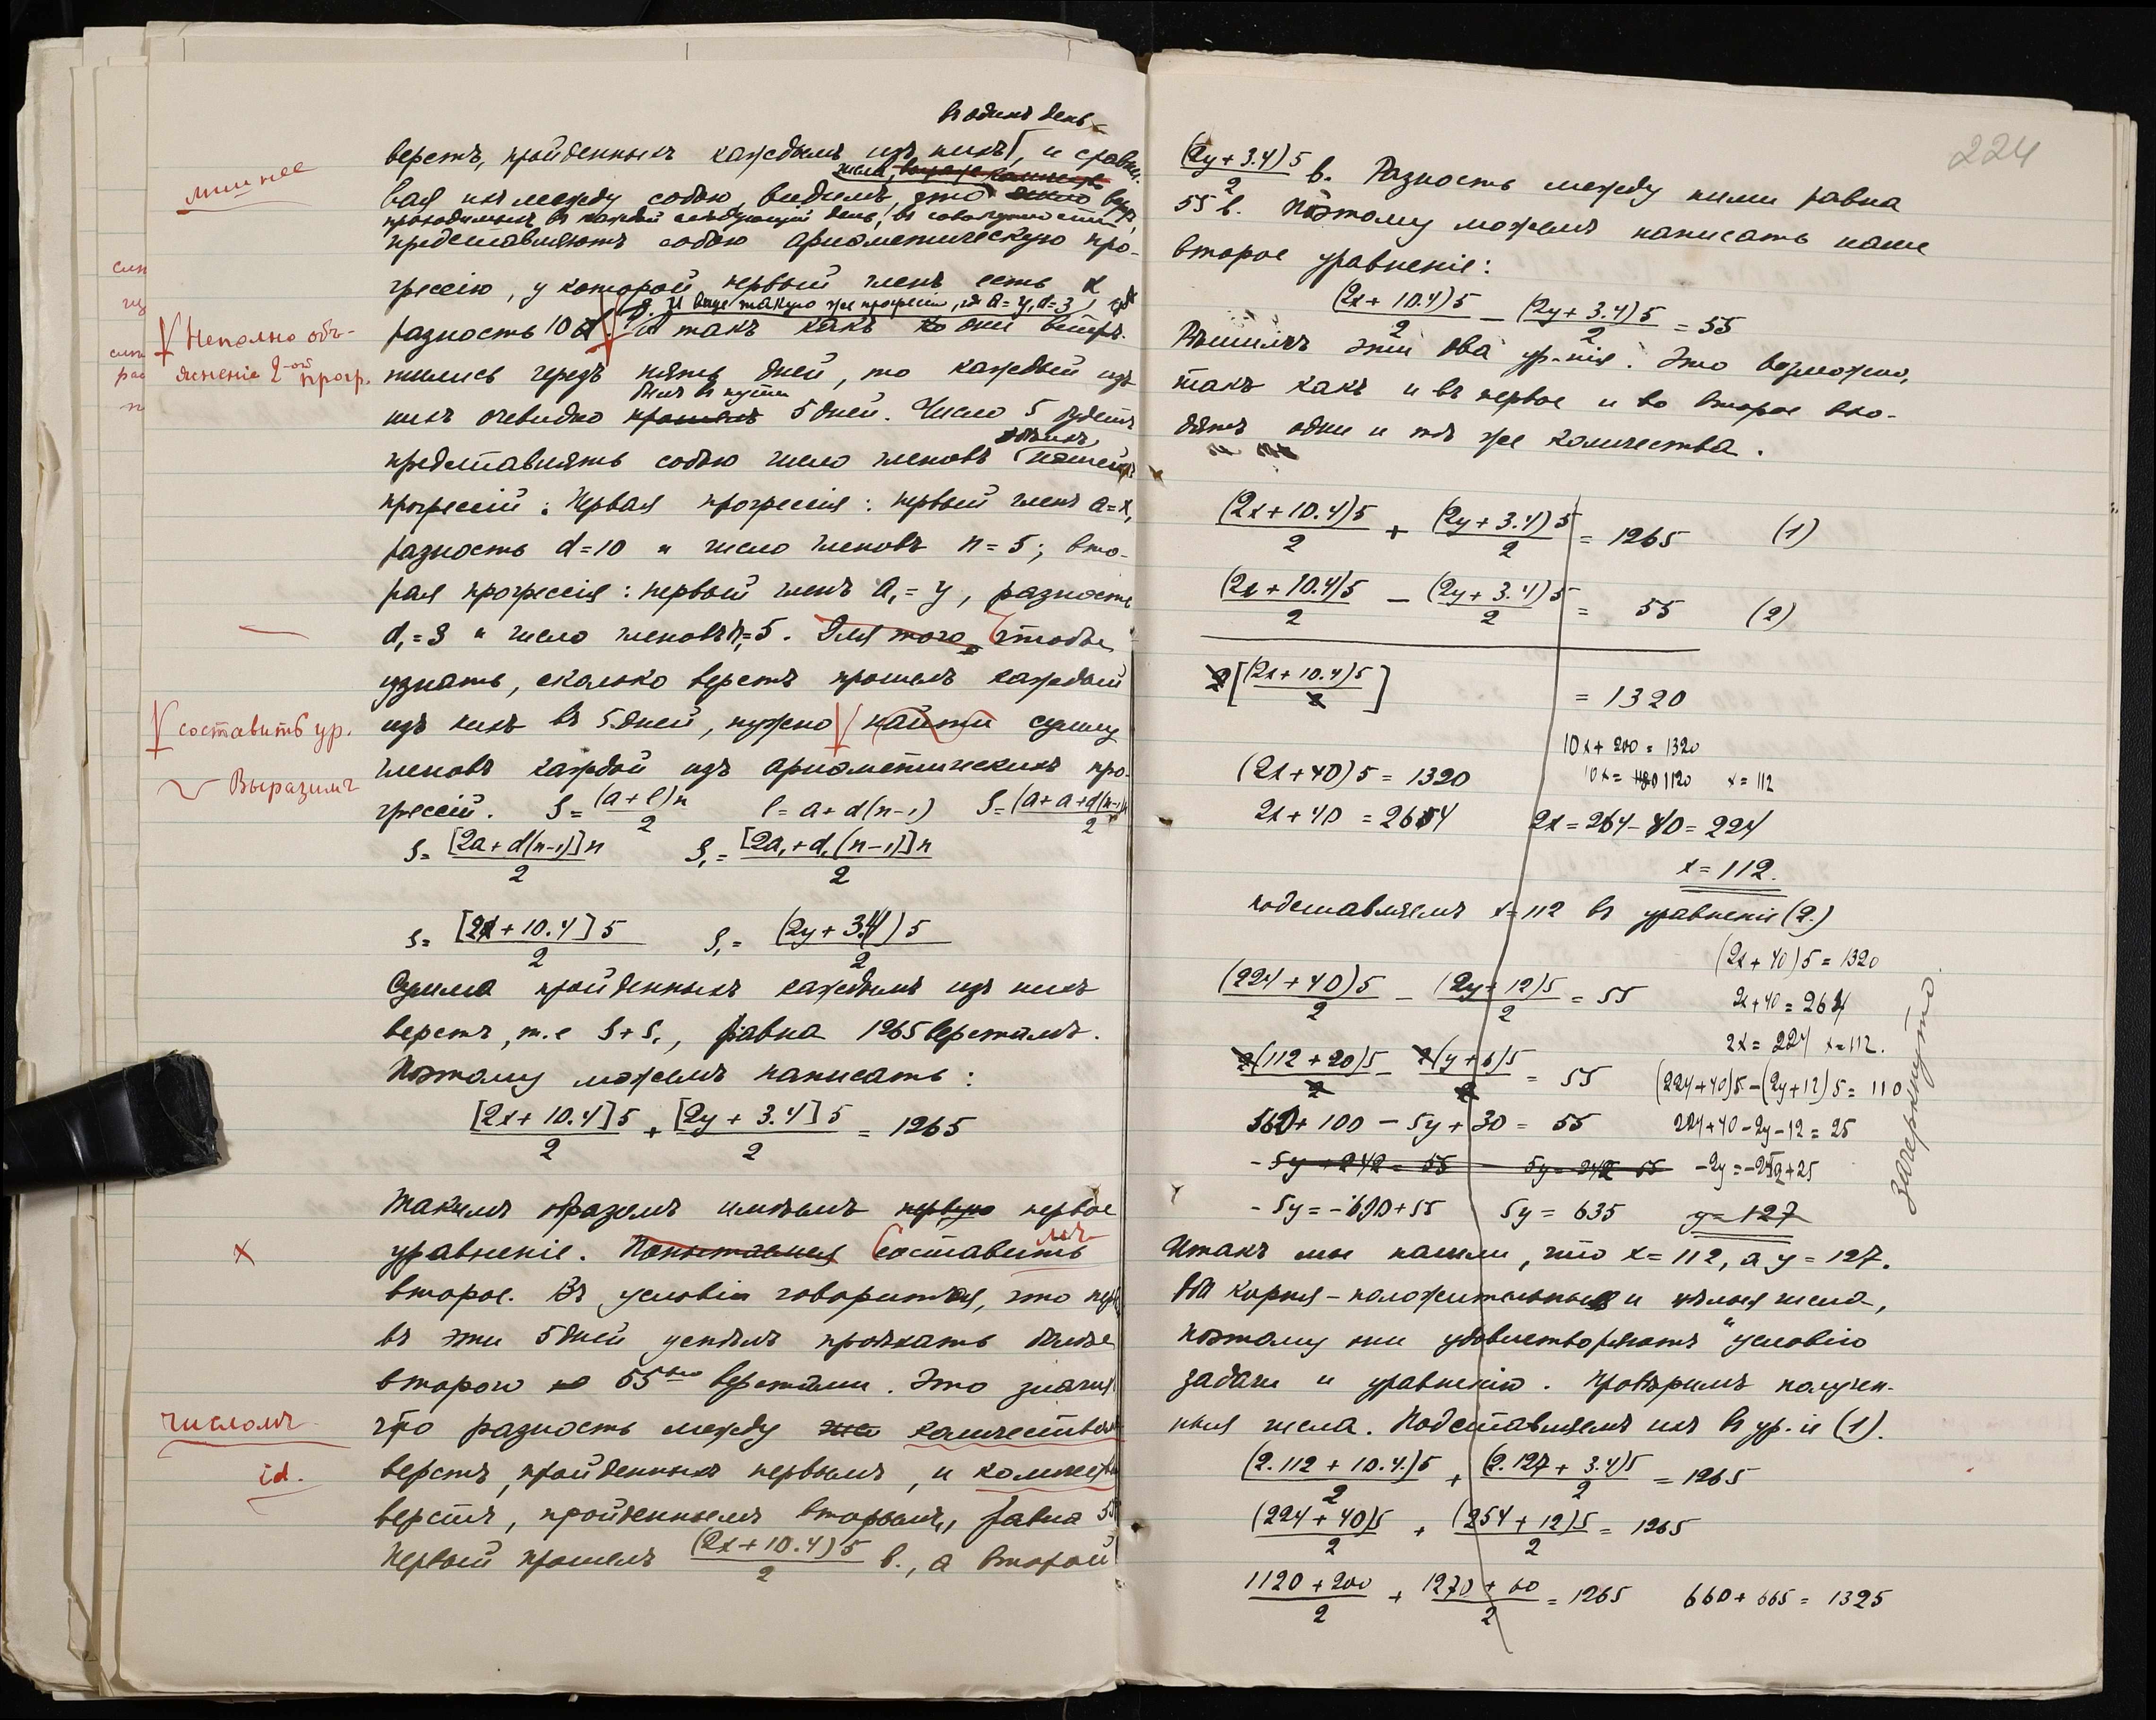 въ одинъ день
верстъ, пройденныхъ каждымъ изъ нихъ, и сравни-
лишнее
числа,
вая ихъ между собою, видимъ, что
проходимыхъ въ каждый слѣдующій день, въ совокупности
представляютъ собою ариѳметическую про-
грессію, у которой первый членъ есть x
и еще такую же прогрессію, гдѣ a = y, d = 3
разность 10 такъ какъ они встрѣ-
Неполно объ-
ясненіе 2-ой прогр.
тились черезъ пять дней, то каждый изъ
былъ въ пути
нихъ очевидно прошелъ 5 дней. Число 5 будетъ
представлять собою число членовъ
прогрессій: Первая прогрессія: первый членъ a=x,
разность d=10 и число членовъ n=5; вто-
рая прогрессія: первый членъ a₁=y, разность
d₁=3 и число членовъ n₁=5. Для того, чтобы
узнать, сколько верстъ прошелъ каждый
составить ур.
изъ нихъ въ 5 дней, нужно найти сумму
Выразимъ
членовъ каждой изъ ариѳметическихъ про-
грессій. S = (a+l)n/2 l = a+d(n-1) S = (a+a+d(n-1))n/2
S = [2a+d(n-1)]n/2 S₁ = [2a₁+d₁(n-1)]n/2
S = [2x+10.4]5/2 S₁ = (2y+3.4)5/2
Сумма пройденныхъ каждымъ изъ нихъ
верстъ, т.е S+S₁, равна 1265 верстамъ.
Поэтому можемъ написать:
[2x+10.4]5/2 + [2y+3.4]5/2 = 1265
Такимъ образомъ имѣемъ первую первое
мъ
x уравненіе. Попытаемся составить
второе. Въ условіи говорится, что
въ эти 5 дней успѣлъ проѣхать болѣе
второго 55 верстами. Это значитъ
числомъ
что разность между количествомъ
id.
верстъ, пройденныхъ первымъ, и
верстъ, пройденныхъ вторымъ, равна 55
Первый прошелъ (2x+10.4)5/2 в., а второй
224
(2y+3.4)5/2 в. Разность между ними равна
55 в. Поэтому можемъ написать наше
второе уравненіе:
(2x+10.4)5/2 - (2y+3.4)5/2 = 55
Рѣшимъ эти два ур-нія. Это возможно,
такъ какъ и въ первое и во второе вхо-
дятъ одни и тѣ же количества.
(2x+10.4)5/2 + (2y+3.4)5/2 = 1265 (1)
(2x+10.4)5/2 - (2y+3.4)5/2 = 55 (2)
2[(2x+10.4)5/2] = 1320
10x+200 = 1320
(2x+40)5 = 1320
10x = 1120 x = 112
2x+40 = 264 2x = 264-40 = 224
x = 112.
подставляемъ x=112 въ уравненіе (2.)
(2x+40)5 = 1320
(224+40)5/2 - (2y+12)5/2 = 55
2x+40 = 264
2x = 224 x=112.
2(112+20)5/2 - 2(y+6)5/2 = 55
(224+40)5-(2y+12)5 = 110
560+100-5y+30 = 55
224+40-2y-12 = 25
-5y+242 = 55 5y = 242-55
-2y = -252+25
-5y = -690+55 5y = 635 y=127
зачеркнуто.
Итакъ мы нашли, что x=112, а y=127.
Оба корня - положительныя и цѣлыя числа,
поэтому они удовлетворяютъ условію
задачи и уравненію. Провѣримъ получен-
ныя числа. Подставляемъ ихъ въ ур-іе (1).
(2.112+10.4.)5/2 + (2.127+3.4)5/2 = 1265
(224+40)5/2 + (254+12)5/2 = 1265
1120+200/2 + 1270+60/2 = 1265 660+665 = 1325